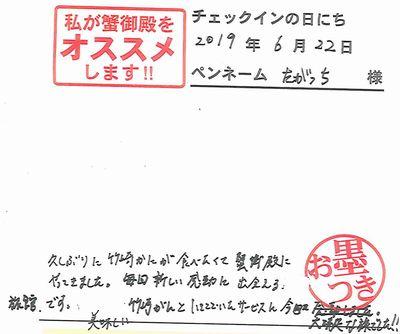 私が蟹御殿を
オススメ
します!!
チェックインの日にち
2019年6月22日
ペンネーム たがっち 様
久しぶりに竹崎かにが食べたくて蟹御殿に
やってきました。毎回新しい感動に出会える
旅館です。
美味しい
竹崎がんと
サービスに今回
お墨つき